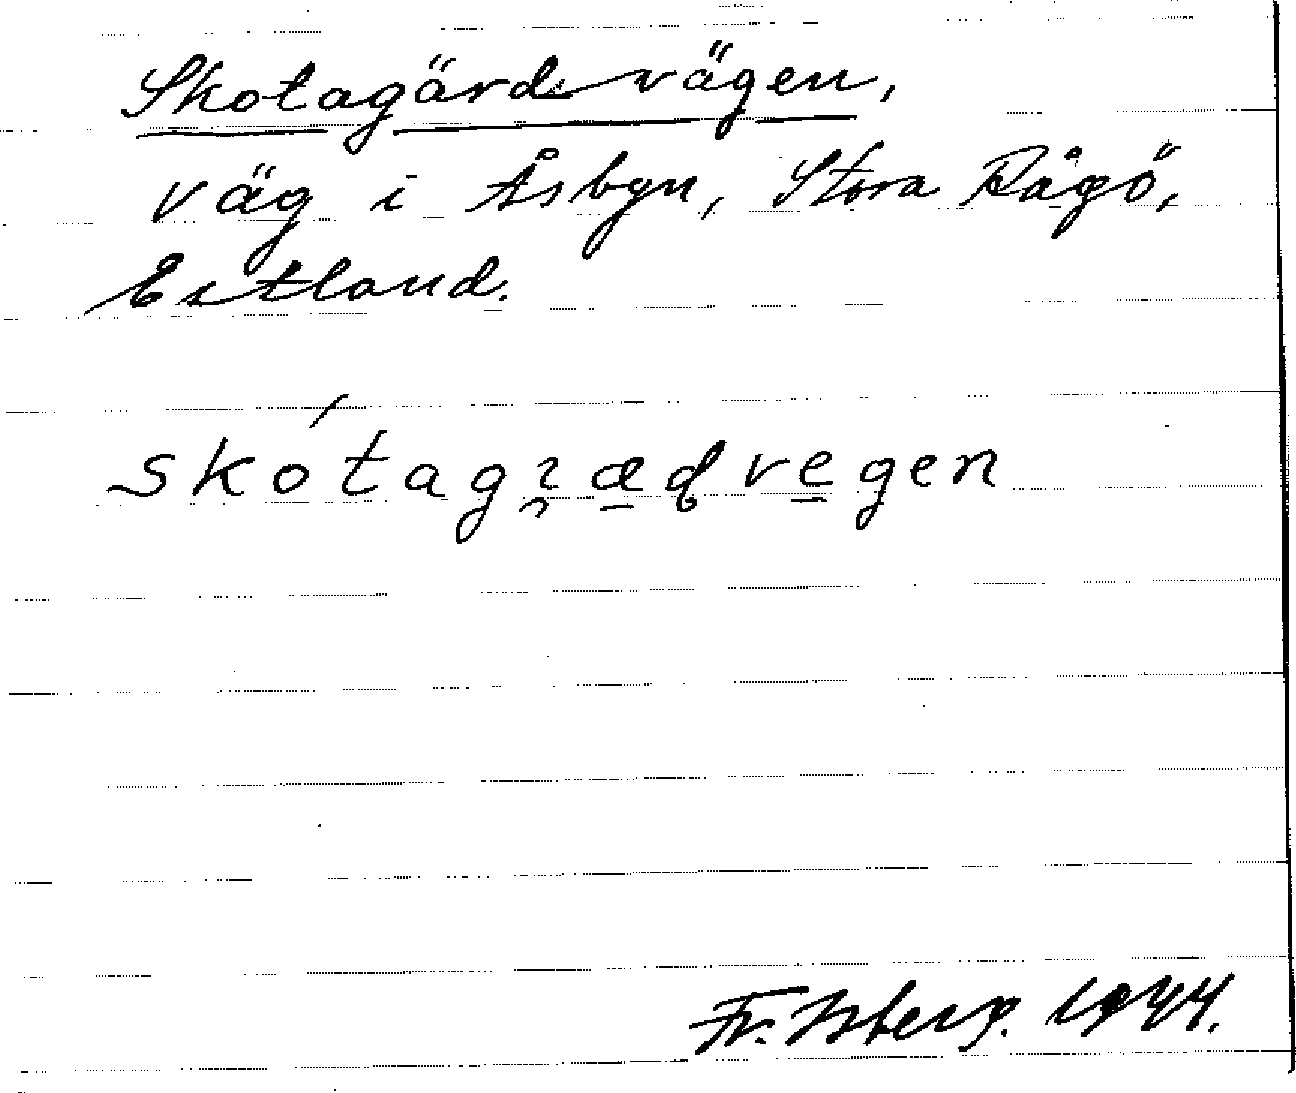 Skotagärdvägen,
väg i Åsbyn, Stora Rågö,
Estland.
skótagɿædvegen
Fr. Isberg. 1944.